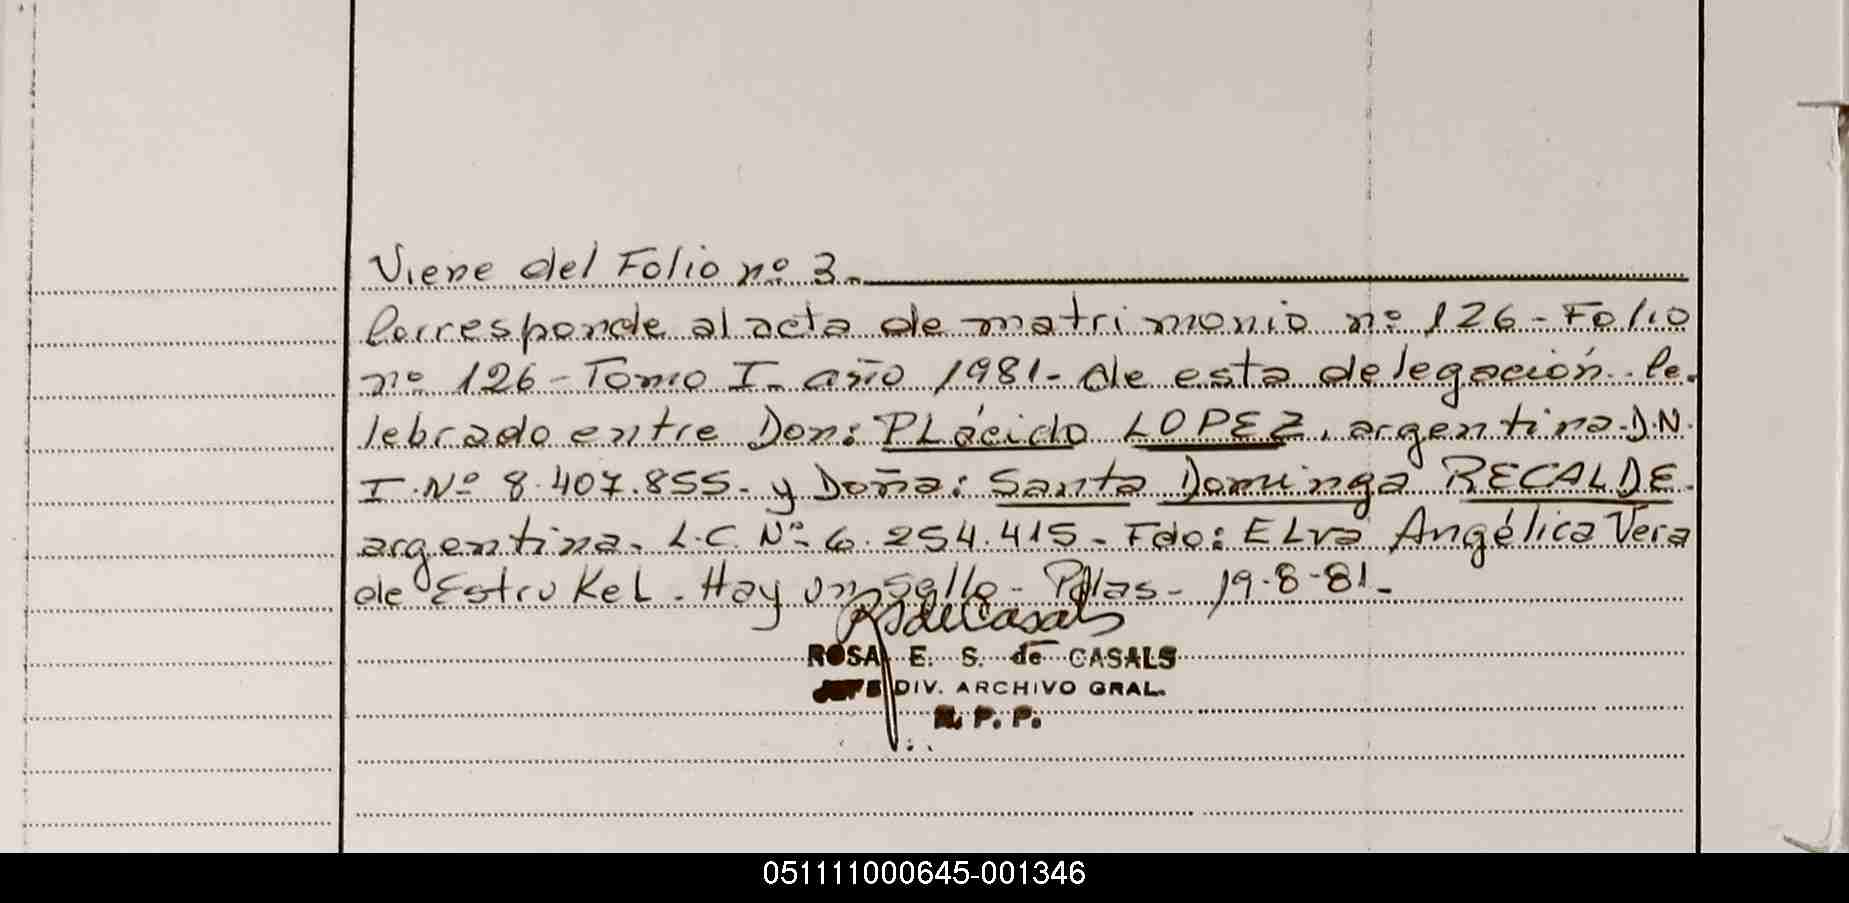 Viene del Folio nº 3.
Corresponde al acta de matrimonio nº 126 - Folio
nº 126 - Tomo I - año 1981 - de esta delegación. Ce-
lebrado entre Don: PLácido LOPEZ, argentino. D.N.
I. Nº 8.407.855. y Doña: Santa Dominga RECALDE.
argentina. L.C. Nº 6.254.415 - Fdo: ELva Angélica Vera
de Estrukel. Hay un sello - Pdas - 19-8-81 -
ROSA E. S. de CASALS
JEFE DIV. ARCHIVO GRAL.
R. P. P.
051111000645-001346